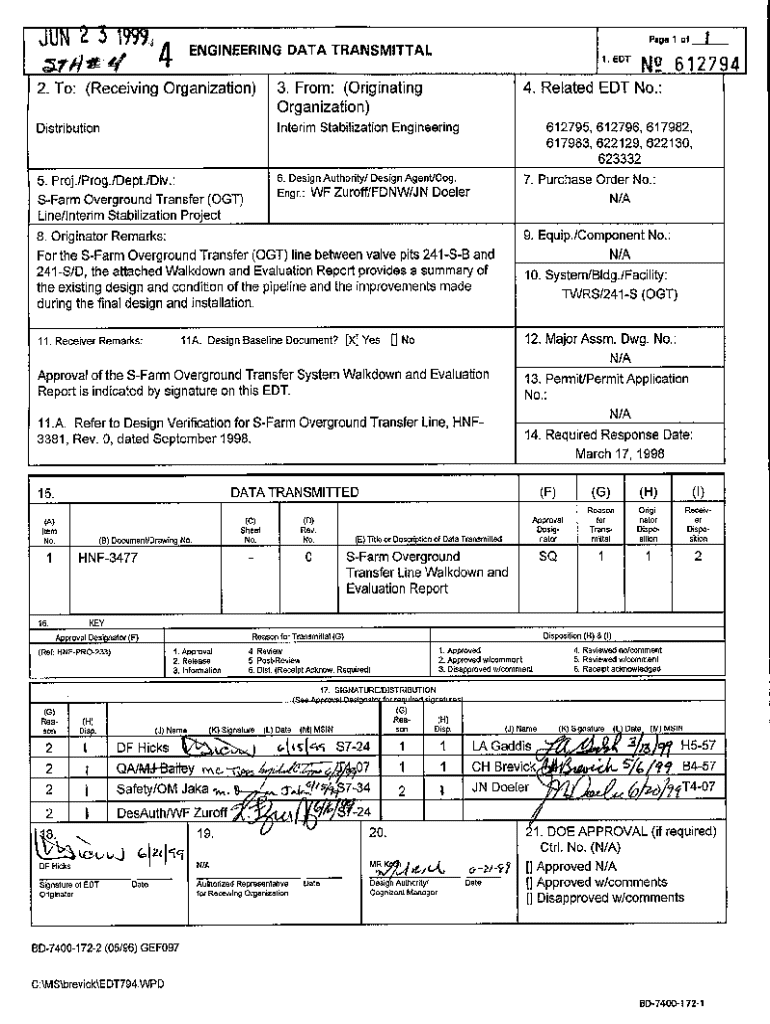 JUN 23 1999
STA #4
4
ENGINEERING DATA TRANSMITTAL
Page 1 of 1
1. EDT Nº 612794
2. To: (Receiving Organization)
Distribution
3. From: (Originating
Organization)
Interim Stabilization Engineering
4. Related EDT No.:
612795, 612796, 617982,
617983, 622129, 622130,
623332
5. Proj./Prog./Dept./Div.:
S-Farm Overground Transfer (OGT)
Line/Interim Stabilization Project
6. Design Authority/ Design Agent/Cog.
Engr.: WF Zuroff/FDNW/JN Doeler
7. Purchase Order No.:
N/A
8. Originator Remarks:
For the S-Farm Overground Transfer (OGT) line between valve pits 241-S-B and
241-S/D, the attached Walkdown and Evaluation Report provides a summary of
the existing design and condition of the pipeline and the improvements made
during the final design and installation.
9. Equip./Component No.:
N/A
10. System/Bldg./Facility:
TWRS/241-S (OGT)
11. Receiver Remarks:
11A. Design Baseline Document? [X] Yes [] No
Approval of the S-Farm Overground Transfer System Walkdown and Evaluation
Report is indicated by signature on this EDT.
11.A. Refer to Design Verification for S-Farm Overground Transfer Line, HNF-
3381, Rev. 0, dated September 1998.
12. Major Assm. Dwg. No.:
N/A
13. Permit/Permit Application
No.:
N/A
14. Required Response Date:
March 17, 1998
15. DATA TRANSMITTED (F) (G) (H) (I)
(A)
Item
No.
(B) Document/Drawing No.
(C)
Sheet
No.
(D)
Rev.
No.
(E) Title or Description of Data Transmitted
Approval
Desig-
nator
Reason
for
Trans-
mittal
Origi
nator
Dispo-
sition
Receiv-
er
Dispo-
sition
1 HNF-3477 - 0 S-Farm Overground SQ 1 1 2
Transfer Line Walkdown and
Evaluation Report
16. KEY
Approval Designator (F) Reason for Transmittal (G) Disposition (H) & (I)
(Ref: HNF-PRO-233) 1. Approval 4 Review 1. Approved 4. Reviewed no/comment
2. Release 5 Post-Review 2. Approved w/comment 5. Reviewed w/comment
3. Information 6. Dist. (Receipt Acknow. Required) 3. Disapproved w/comment 6. Receipt acknowledged
17. SIGNATURE/DISTRIBUTION
(See Approval Designator for required signatures)
(G)
Rea-
son
(H)
Disp.
(J) Name (K) Signature (L) Date (M) MSIN
(G)
Rea-
son
(H)
Disp.
(J) Name (K) Signature (L) Date (M) MSIN
2 1 DF Hicks 6/15/99 S7-24 1 1 LA Gaddis 3/18/99 H5-57
2 1 QA/MJ Bailey 07 1 1 CH Brevick CH Brevick 5/6/99 B4-57
2 1 Safety/OM Jaka S7-34 2 1 JN Doeler JN Doeler 6/20/99 T4-07
2 1 DesAuth/WF Zuroff S7-24
18.
6/21/99
DF Hicks
Signature of EDT Date
Originator
19.
N/A
Authorized Representative Date
for Receiving Organization
20.
6-21-99
Design Authority/ Date
Cognizant Manager
21. DOE APPROVAL (if required)
Ctrl. No. (N/A)
[] Approved N/A
[] Approved w/comments
[] Disapproved w/comments
BD-7400-172-2 (05/96) GEF097
C:\MS\brevick\EDT794.WPD
BD-7400-172-1